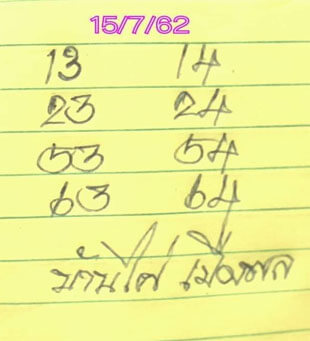 15/7/62
13 14
23 24
53 54
63 64
บ้านไผ่ เมืองพล